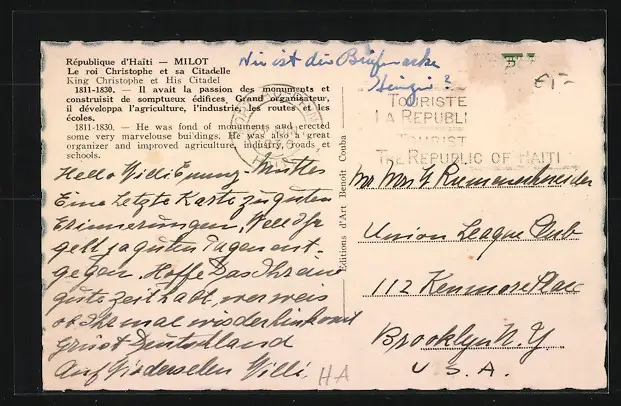 République d'Haïti — MILOT
Le roi Christophe et sa Citadelle
King Christophe et His Citadel
1811-1830. — Il avait la passion des monuments et
construisit de somptueux édifices. Grand organisateur,
il développa l'agriculture, l'industrie, les routes et les
écoles.
1811-1830. — He was fond of monuments and erected
some very marvelouse buildings. He was also a great
organizer and improved agriculture, industry, roads et
schools.
Wir ist die Briefmarke
€1-
Hello Willi Emmy - Muttes
Eine Letzte Karte zu guten
Erinnerungen, Well Ihr
geht ja guten Tagen ent-
gegen. Hoffe Das Ihr eine
gute Zeit habt, wer weis
ob Ihr mal wieder hinkomt
Grüst Deutschland
Auf Wiedersehen Willi.
HA
Editions d'Art Benoît Comba
TOURISTE
LA REPUBLI
TOURIST
THE REPUBLIC OF HAITI
Mr Mrs W.
Union League Club
112 Kenmore Place
Brooklyn N.Y
U.S.A.